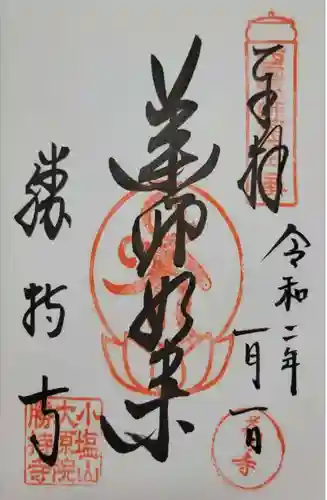 奉拝
令和二年
一月一日
薬師如来
勝持寺
小塩山
大原院
勝持寺